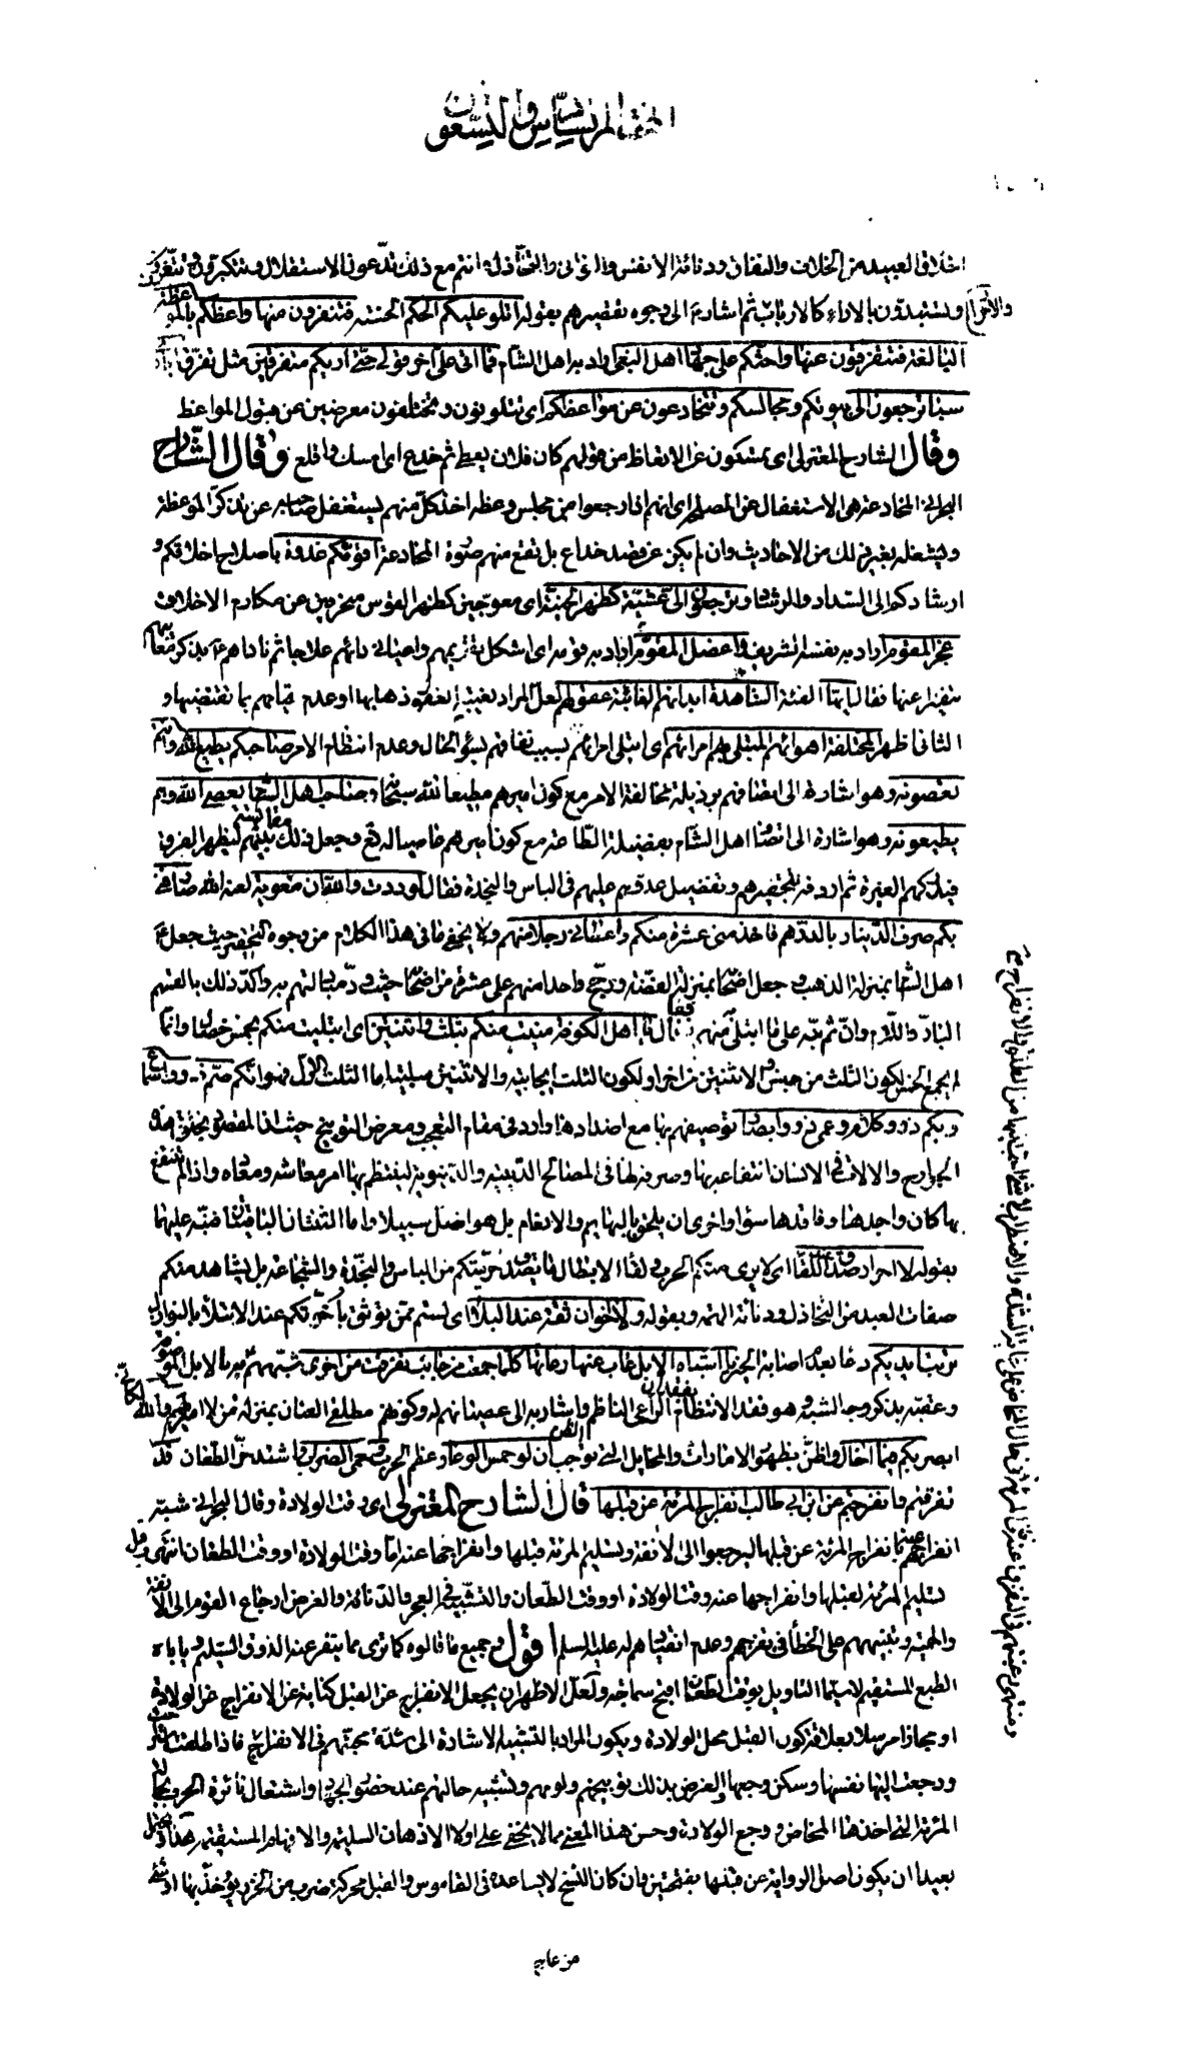 المختار السادس والتسعون
اخلاق العبيد من الخلاف والنفاق ودنائة الانفس والتوانى والتخاذل انتم مع ذلك تدّعون الاستقلال وتتكبرون وتتفرعون
والاحرار وتستبدّون بالاراء كالارباب ثم اشار الى وجوه تقصيرهم بقوله اتلو عليكم الحكم الحسنة فتنفرون منها واعظكم بالموعظة
البالغة فتتفرقون عنها واحثكم على جهاد اهل البغى اراد به اهل الشام فما اتى على آخر قولى حتّى اريكم متفرقين مثل تفرّق ايادى
سبا ترجعون الى بيوتكم ومجالسكم وتتخادعون عن مواعظكم اى تتلونون وتختلفون معرضين عن قبول المواعظ
وقال الشارح المعتزلى اى تمسكون عن الاتعاظ من قولهم كان فلان يعطى ثم خدع اى امسك واقلع وقال الشارح
البحرانى المخادعة هى الاستغفال عن المصلحة اى انهم اذا رجعوا من مجلس وعظه اخذ كلّ منهم يستغفل صاحبه عن تذكر الموعظة
ويشغله بغير ذلك من الاحاديث وان لم يكن عن قصد خداع بل تقع منهم صورة المخادعة اقوّمكم غدوة باصلاح اخلاقكم و
ارشادكم الى السّداد والرشاد وترجعون الىّ عشيّة كظهر الحنيّة اى معوجّين كظهر القوس منحرفين عن مكارم الاخلاق
عجز المقوّم اراد به نفسه الشريف واعضل المقوّم اراد به قومه اى اشكل تقويمهم واعيانى دائهم علاجا ثم ناداهم بذكر معايبهم
تنفيرا عنها فقال ايّها الفئة الشاهدة ابدانهم الغائبة عقولهم لعل المراد بغيبة العقول ذهابها او عدم قيامهم بما تقتضيها و
الثانى اظهر المختلفة اهوائهم المبتلى بهم امرائهم اى ابتلى امرائهم بسبب نفاقهم بسوء الحال وعدم انتظام الامر صاحبكم يطيع الله وانتم
تعصونه وهو اشارة الى اتّصافهم برذيلة مخالفة الامر مع كون اميرهم مطيعا لله سبحانه وصاحب اهل الشّام يعصى الله وهم
يطيعونه وهو اشارة الى اتّصاف اهل الشّام بفضيلة الطّاعة مع كون اميرهم عاصيا له تع وجعل ذلك مقايسة بينهم ليظهر الفرق
فيدركهم الغيرة ثم اردفه بتحقيرهم وتفضيل عدوّهم عليهم فى الباس والنجدة فقال لوددت والله ان معوية لعنه الله صارفنى
بكم صرف الدّينار بالدّرهم فاخذ منى عشرة منكم واعطانى رجلا منهم ولا يخفى ما فى هذا الكلام من وجوه التحقير حيث جعل
اهل الشّام بمنزلة الذهب وجعل اصحابه بمنزلة الفضّة ورجّح واحدا منهم على عشرة من اصحابه وأكّد ذلك بالقسم
البارّ واللّام وانّ ثم نبّه على ما ابتلى منهم فقال يا اهل الكوفة منيت منكم بثلث واثنتين اى ابتليت منكم بخمس خصال وانّما
لم يجمع الخمس لكون الثلث من جنس والاثنتين من آخر او لكون الثلث ايجابية والاثنتين سلبية امّا الثلث الاول فهو انّكم صمّ ذوو اسماع
وبكم ذوو كلام وعمى ذوو ابصار توصيفهم بها مع اضدادها وارد فى مقام التعجب ومعرض التوبيخ حيث انّ المقصود بخلقة هذه
الجوارح والالات فى الانسان انتفاعه بها وصرفها فى المصالح الدّينية والدّنيوية لينتظم بها امر معاشه ومعاده واذا لم ينتفع
بها كان واجدها وفاقدها سواء واحرى ان يلحق بالبهائم والانعام بل هو اضلّ سبيلا وامّا الثنتان الباقيتان فنبّه عليهما
بقوله لا احرار صدق عند اللّقاء اى لا يرى منكم الحرب ولقاء الابطال ما يصدق حرّيتكم من الباس والنجدة والشجاعة بل يشاهد منكم
صفات العبيد من التخاذل ودنائة الهمّة وبقوله ولا اخوان ثقة عند البلاء اى لستم ممّن يوثق باخوّتكم عند الابتلاء بالنوازل
تربت ايديكم دعا بعدم اصابة الخير يا اشباه الابل غاب عنها رعاتها كلّما جمعت من جانب تفرّقت من آخر شبّههم بالابل
وعقبه بذكر وجه الشبه وهو فقد الانتظام بفقدان الراعى الناظم واشار به الى عصيانهم له وكونهم مطلقى العنان بمنزلة من لا امير لهم والله لكانّى
ابصر بكم فيما اخال واظنّ بظهور الامارات والمخايل التى توجب الظنّ ان لو حمس الوغا وعظم الحرب وحمى الضراب واشتدّ حرّ الطعان قد
تفرقتم وانفرجتم عن ابن ابي طالب انفراج المرئة عن قبلها قال الشارح المعتزلى اى وقت الولادة وقال البحرانى شبّه
انفراجهم عنه بانفراج المرئة عن قبلها ليرجعوا الى الانفة وتسليم المرئة قبلها وانفراجها عنه امّا وقت الولادة او وقت الطعان انتهى وقيل
تسليم المرئة لقبلها وانفراجها عنه وقت الولادة او وقت الطّعان والتشبيه فى العجز والدّنائة والغرض ارجاع القوم الى الانفة
والحميّة وتنبيههم على الخطأ فى تفرّجهم وعدم انقيادهم له عليه السلم اقول وجميع ما قالوه كما ترى ممّا يتنفر عنه الذوق السّليم ويأباه
الطبع المستقيم لاسيّما التاويل بوقت الطعان اقبح سماجة ولعلّ الاظهر ان يجعل الانفراج عن القبل كناية عن الانفراج عن الولادة
او مجازا مرسلا بعلاقة كون القبل محل الولادة ويكون المراد بالتشبيه الاشارة الى شدّة محبّتهم فى الانفراج فاذا طلقت
ورجعت اليها نفسها وسكن وجعها والغرض بذلك توبيخهم ولومهم وتشبيه حالهم عند حضور الجهاد واشتعال نائرة الحرب بحال
المرئة التى اخذها المخاض ووجع الولادة وحسن هذا المعنى ممّا لا يخفى على اولى الاذهان السليمة والافهام المستقيمة هذا ويحتمل
بعيدا ان يكون اصل الرواية عن قبلها بفتحتين وان كان النسخ لا يساعده فى القاموس والقبل محركة ضرب من الخرز يؤخذ بها او شىء
من عاج